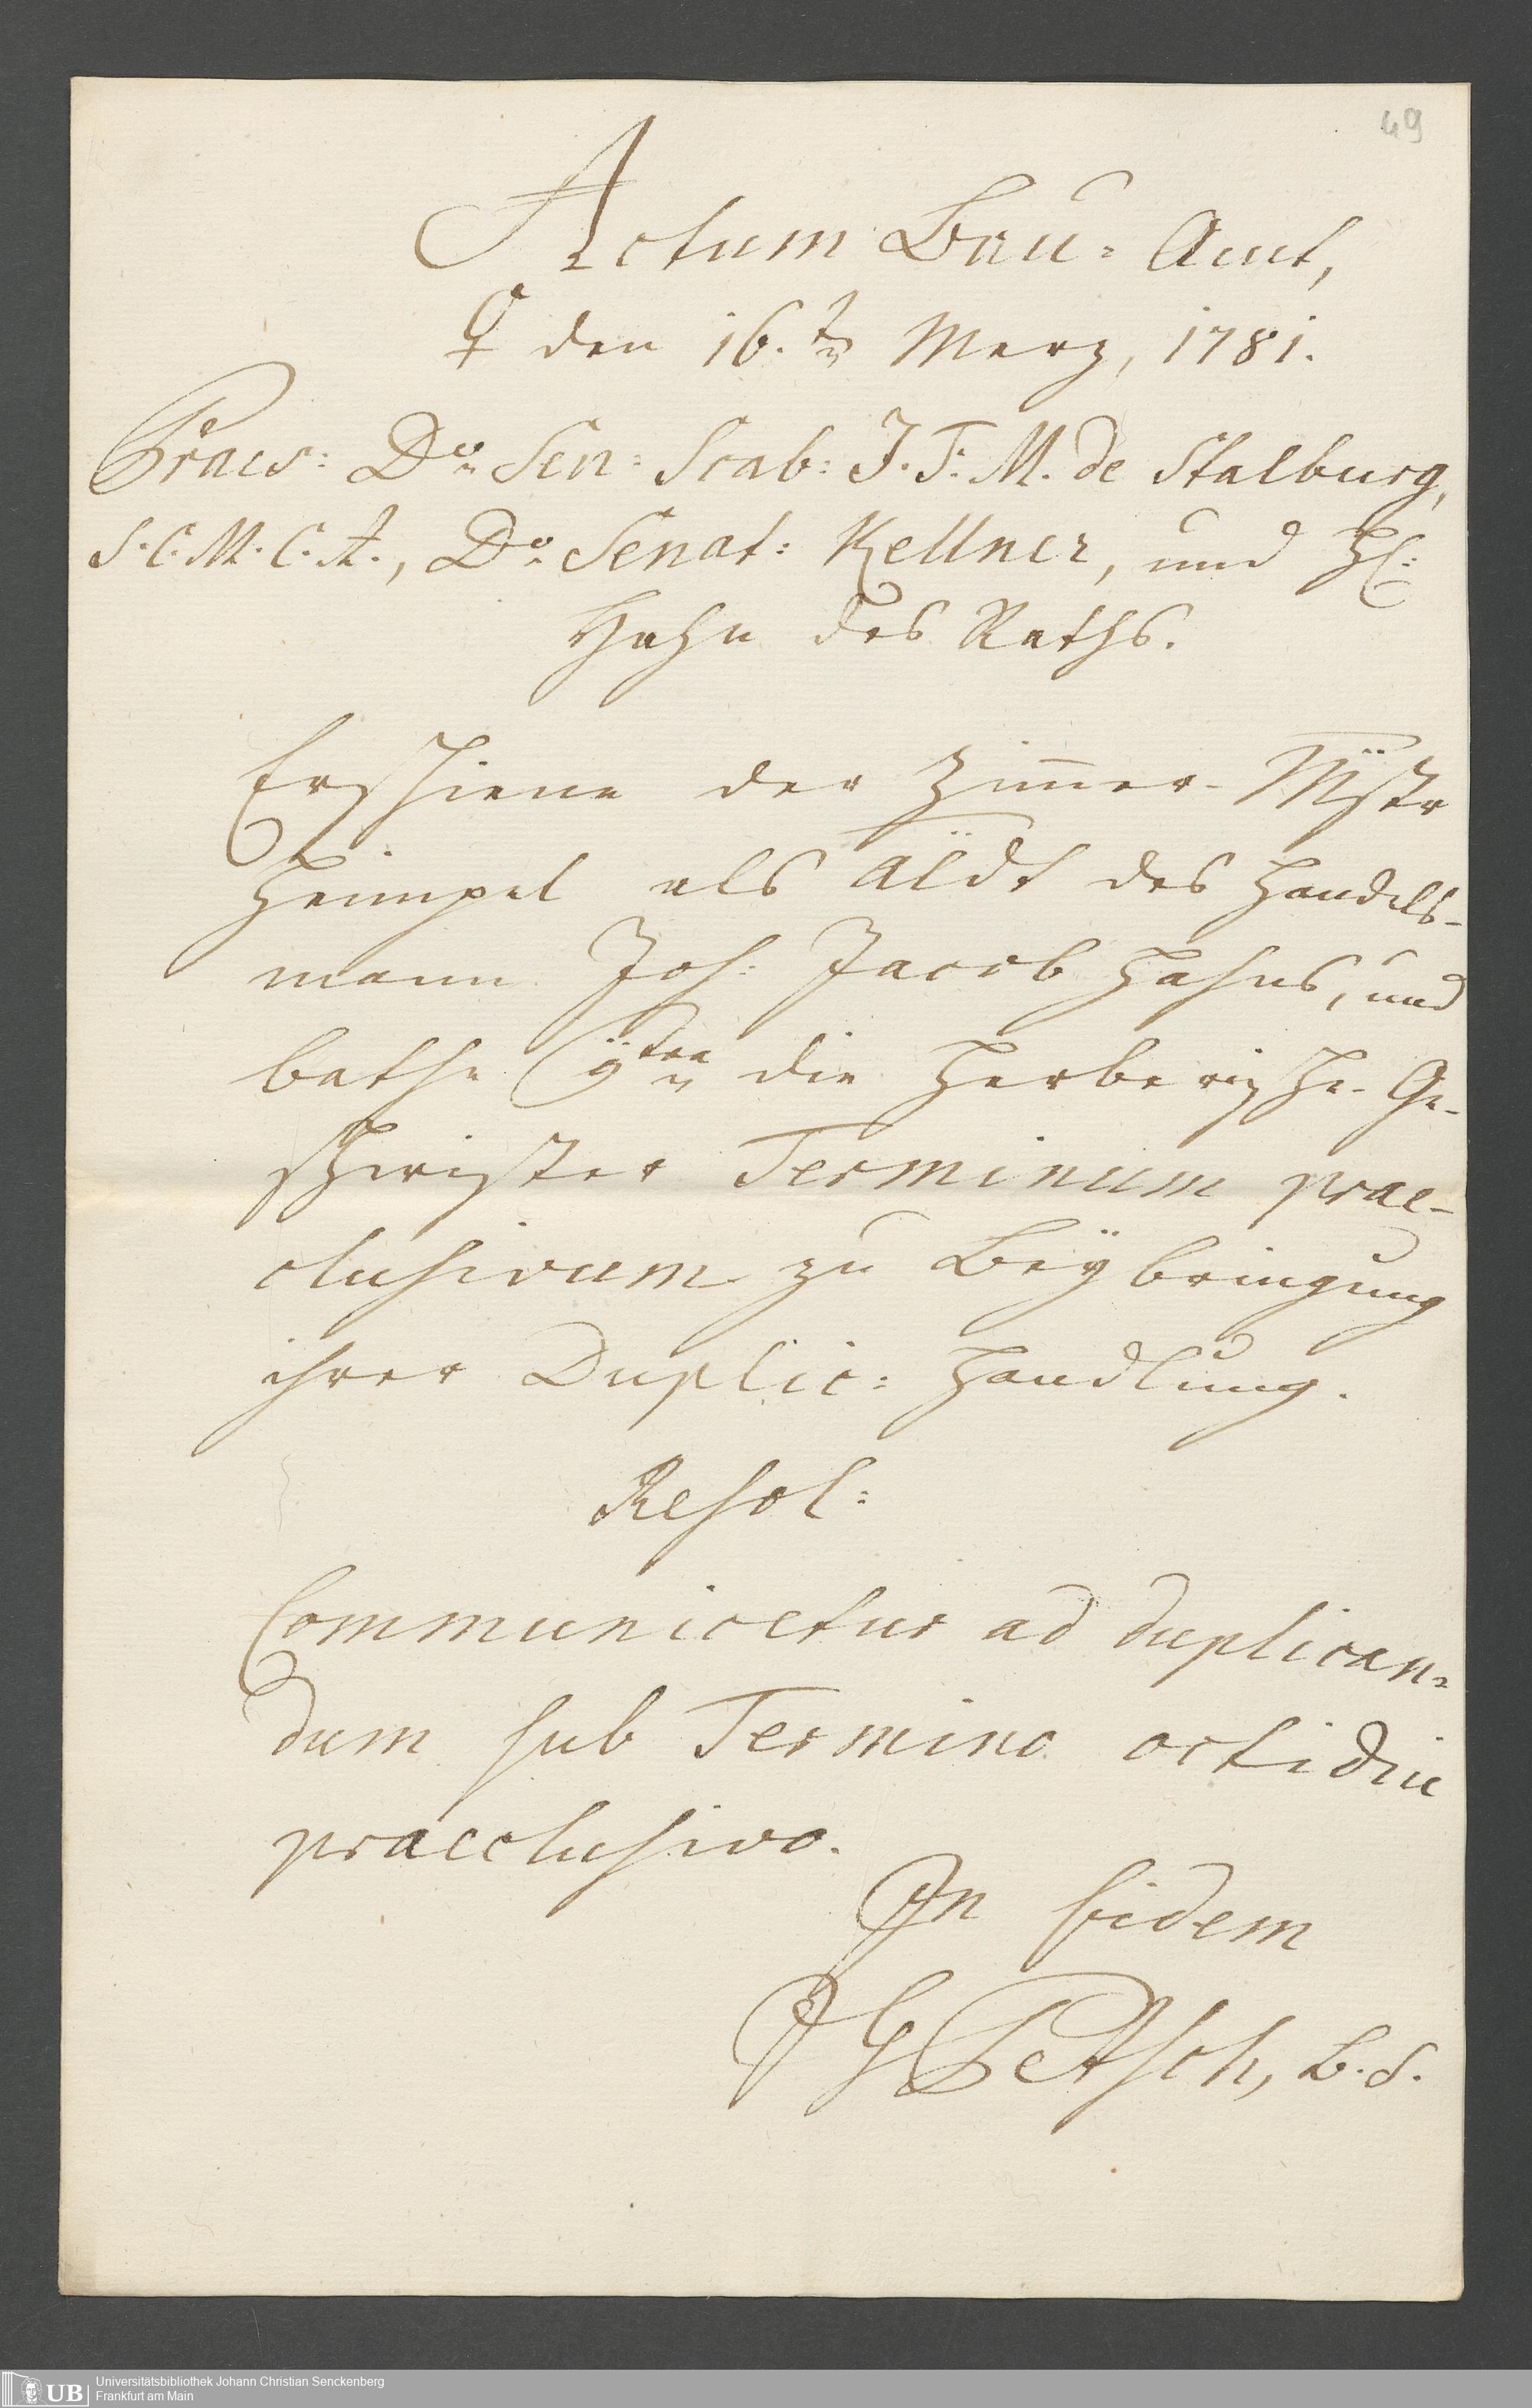 49
Actum Bau-Amt,
♀ den 16.ten Merz, 1781.
Praes: Dno Sen: Scab: J. F. M. de Stalburg,
S. C. M. C. A., Dno Senat: Kellner, und H:
Hahn des Raths.
Erschiene der Zimer-Mstr
Heimpel als des Handels-
mann Joh: Jacob Hahns, und
bathe die Herberische Ge-
schwister Terminum prae-
clusivum zu Beÿbringung
ihrer Duplic: Handlung.
Resol:
Communicetur ad duplican-
dum sub Termino octidui
praeclusivo.
In fidem
J G Petsch, B. S.
UB Universitätsbibliothek Johann Christian Senckenberg
Frankfurt am Main